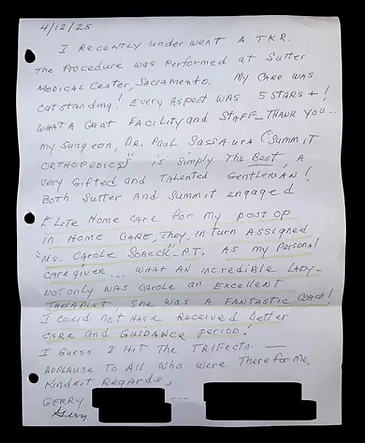 4/12/25
I Recently under went A TKR.
The Procedure was performed at Sutter
Medical Center, Sacramento. My care was
outstanding! Every Aspect was 5 STARS +!
What A Great Facility and Staff – Thank you..
my Surgeon, Dr. Paul Sassaura ("Summit
Orthopedics)" is simply The Best, A
very Gifted and Talented Gentleman!
Both Sutter And Summit engaged
Elite Home Care for my post op
in Home Care, They, in turn Assigned
"Ms. Carole Sobeck" P.T. As my Personal
Caregiver... What An incredible Lady –
Not only was Carole an Excellent
Therapist She was A Fantastic Coach!
I could not have received better
Care and Guidance period!
I Guess I Hit The Trifecta. —
Applause To All Who were There for Me.
Kindest Regards,
Gerry
Gerry